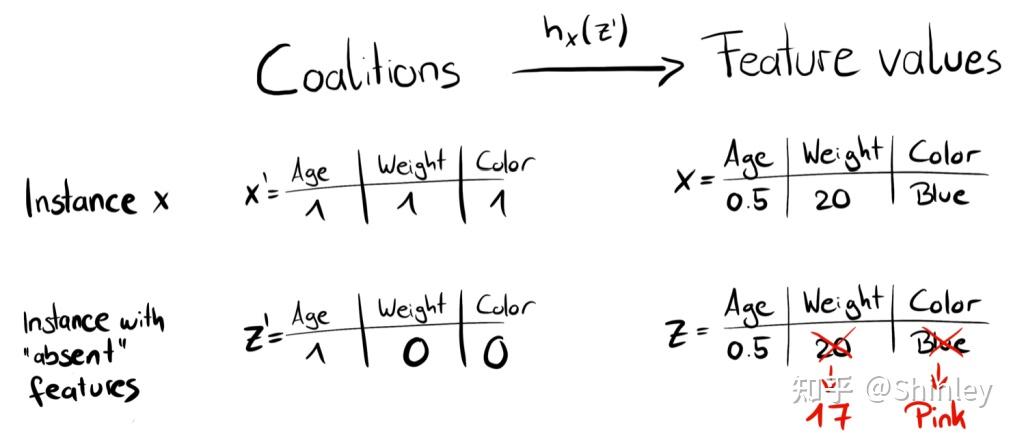 Coalitions hx(z') Feature values
Instance x x'= Age Weight Color x= Age Weight Color
1 1 1 0.5 20 Blue
Instance with "absent" features z'= Age Weight Color z= Age Weight Color
1 0 0 0.5 20 Blue
知乎 @Shinley
17 Pink